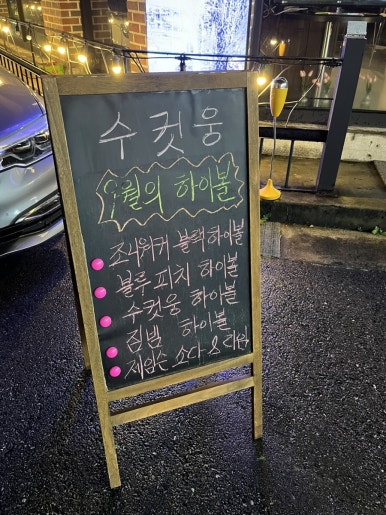 수컷웅
9월의 하이볼
조니워커 블랙 하이볼
블루 피치 하이볼
수컷웅 하이볼
짐빔 하이볼
제임슨 소다 & 라임